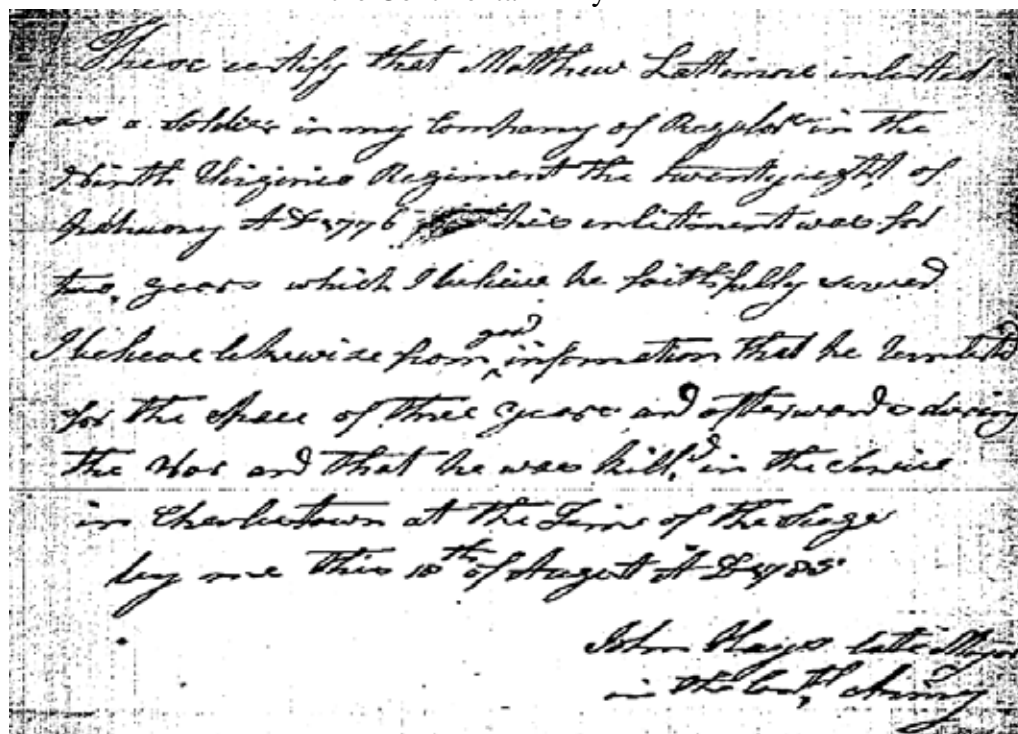 These certify that Matthew Lattimore inlisted
as a Soldier in my Company of Regulars in the
Ninth Virginia Regiment the twenty eight of
February A D 1776 this enlistment was for
two years which I believe he faithfully served
I believe likewise from good information that he Reinlisted
for the space of three years and afterwards during
the War and that he was kill,d in the Service
in Charlestown at the Time of the Siege
by me this 10th of August A D 1785
John Hays late Major
in the Cont,l Army